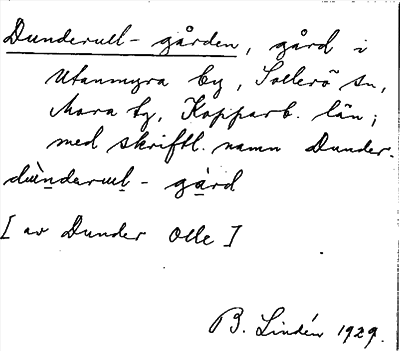 Dunderull-gården, gård i
Utanmyra by, Sollerö sn,
Mora tg, Kopparb. län;
med skriftl. namn Dunder-
dùndarul-gård
[av Dunder Olle]
B. Lindén 1929.